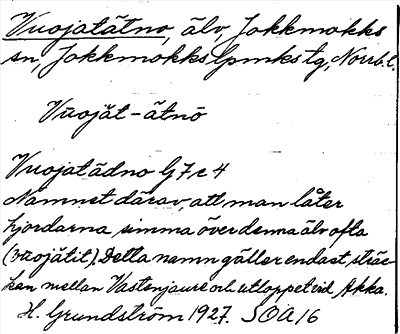 Vuojatätno, älv, Jokkmokks
sn, Jokkmokks lpmks tg, Norrb.l.
Vŭojăt-ätnō
Vuojatädno G7c4
Namnet därav, att man låter
hjordarna simma över denna älv ofta
(vŭojătit). Detta namn gäller endast sträc-
kan mellan Vastenjaure och utloppet vid Akka.
H. Grundström 1927. SOA 16